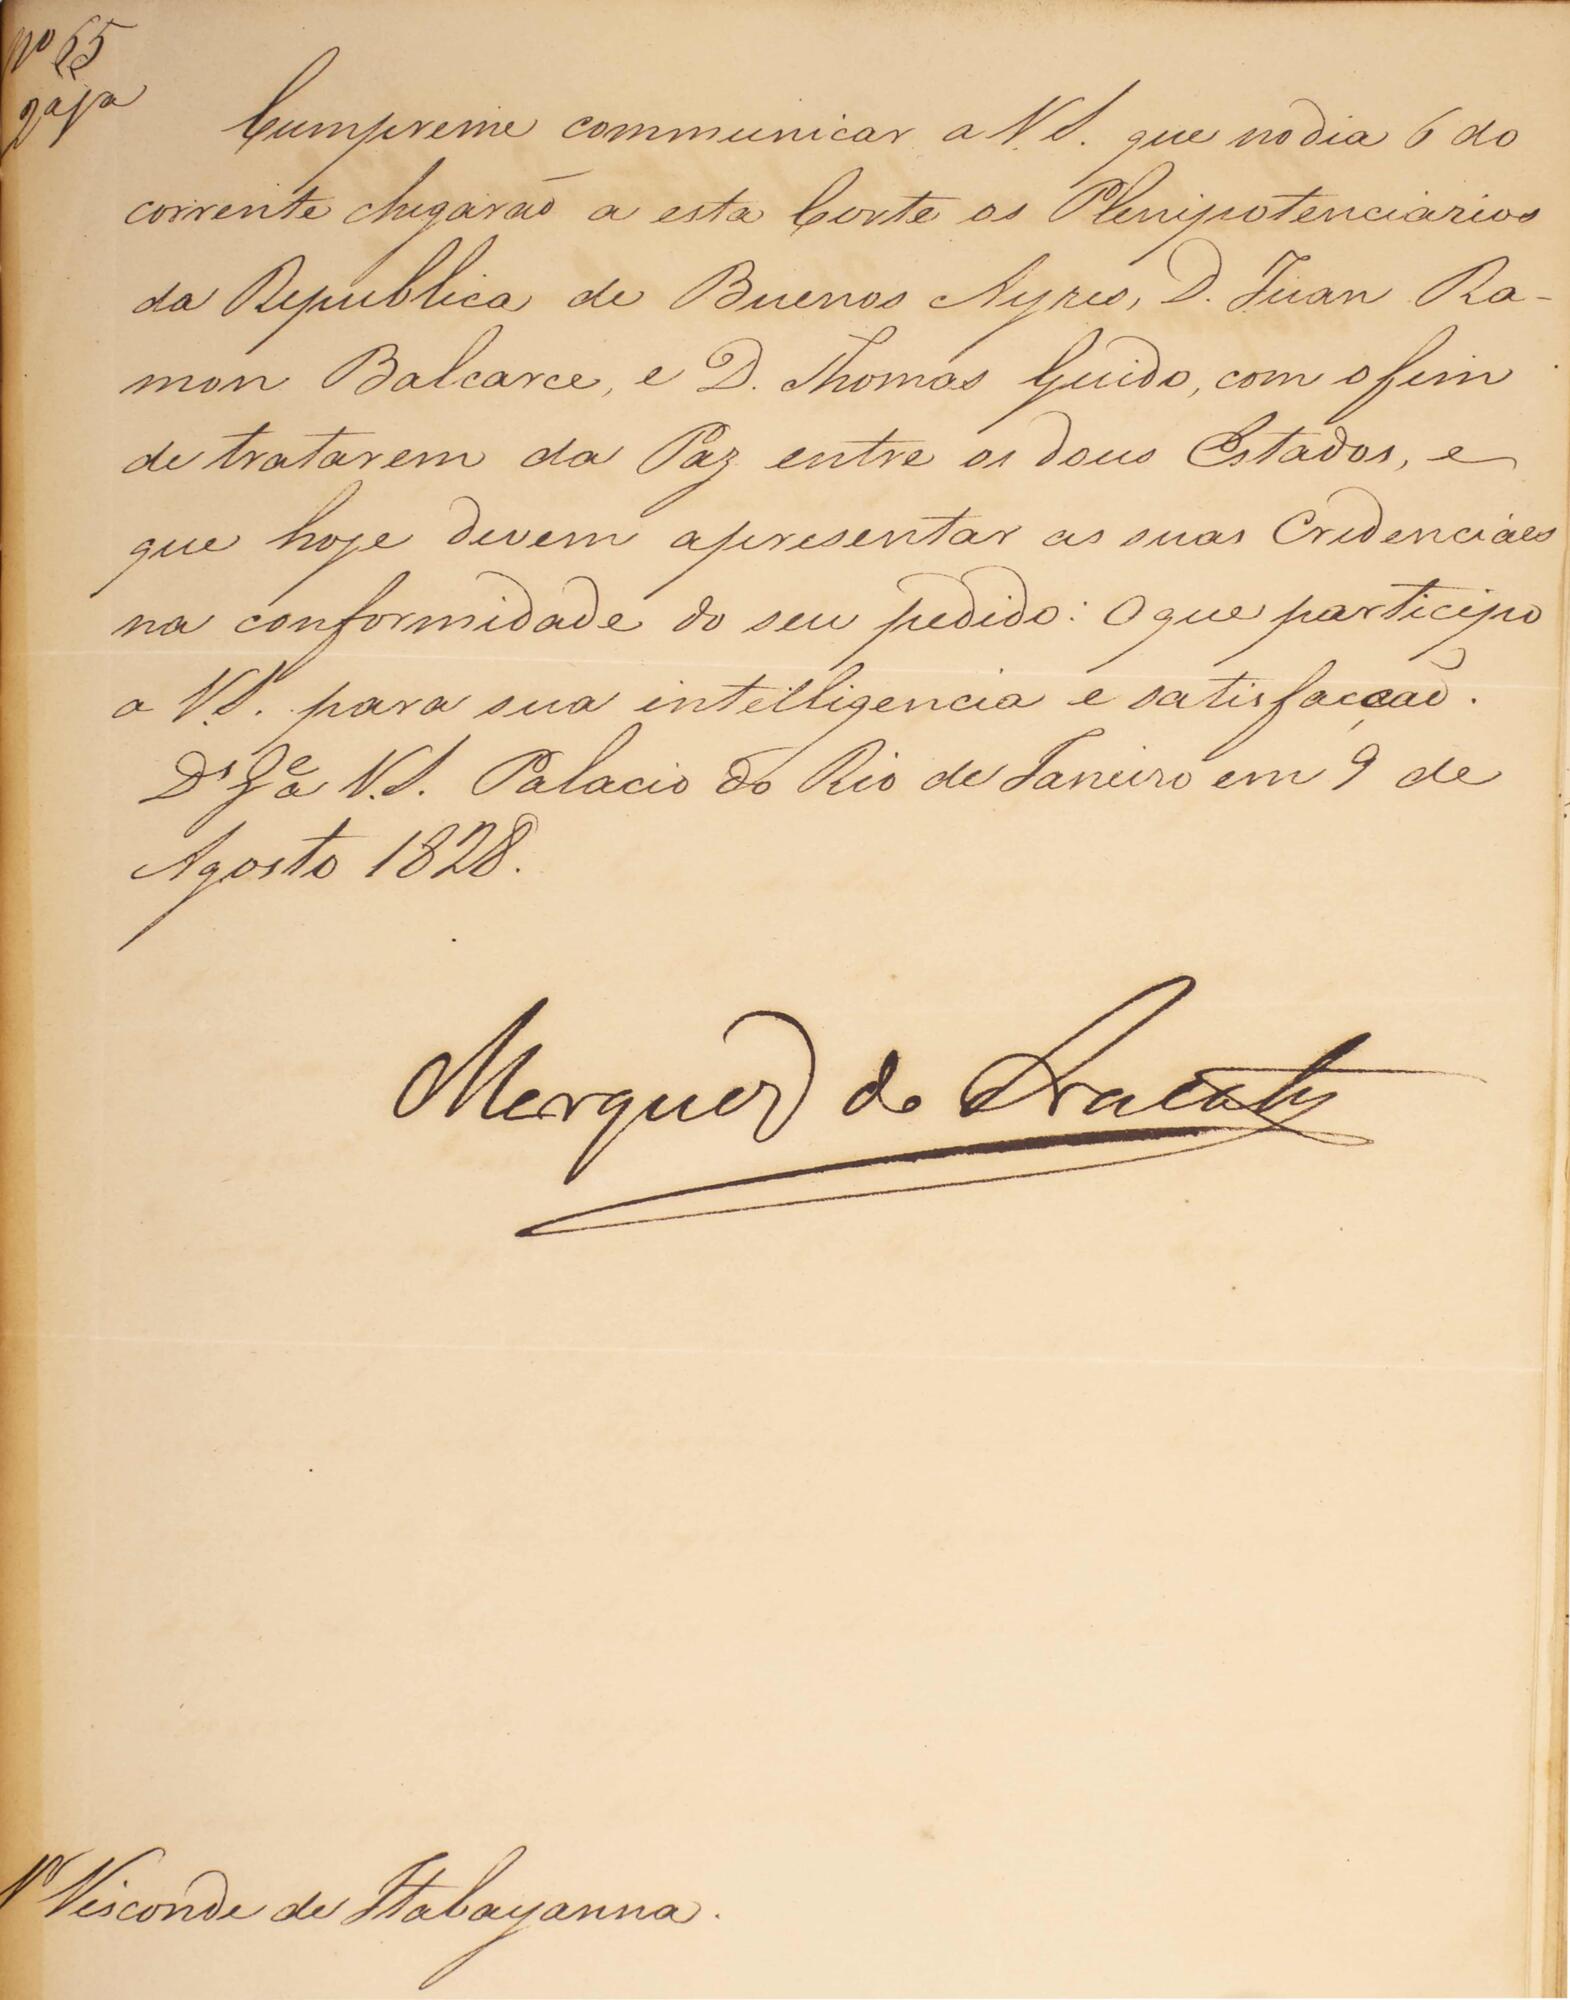 Nº 65
2ª via
Cumpreme communicar a V.S. que no dia 6 do
corrente chegarão a esta Corte os Plenipotenciarios
da Republica de Buenos Ayres, D. Juan Ra-
mon Balcarce, e D. Thomas Guido, com o fim
de tratarem da Paz entre os dous Estados, e
que hoje devem apresentar as suas Credenciaes
na conformidade do seu pedido: O que participo
a V.S. para sua intelligencia e satisfacção.
Ds Ge a V.S. Palacio do Rio de Janeiro em 9 de
Agosto 1828.
Marquez do Aracaty
Visconde de Itabayanna.